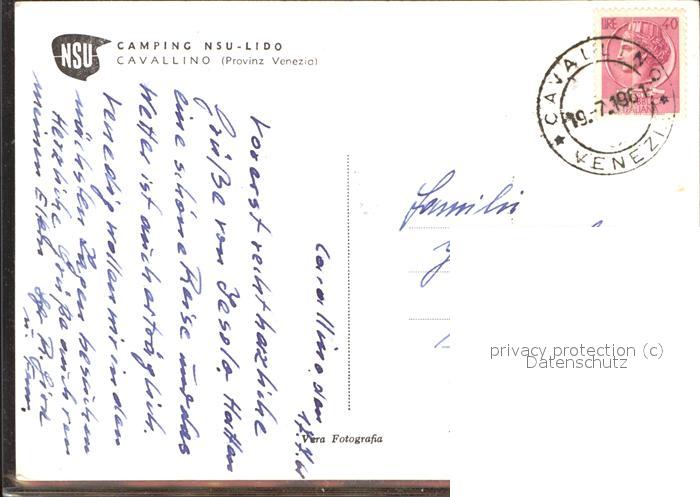 NSU
CAMPING NSU-LIDO
CAVALLINO (Provinz Venezia)
LIRE 40
CAVALLINO
19.-7.1961
VENEZIA
Cavallino, den
17.7.61
Vorerst recht herzliche
Grüße von Jesolo. Hatten
eine schöne Reise und das
Wetter ist auch erträglich.
Venedig wollen wir in den
nächsten Tagen besuchen
Herzliche Grüße auch von
meinen Eltern
Familie
Vera Fotografia
privacy protection (c)
Datenschutz